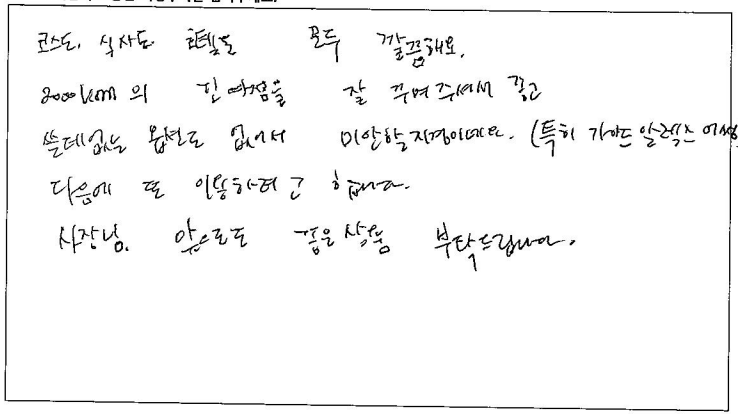 코스도, 식사도 호텔도 모두 깔끔해요.
2000km의 긴 여정을 잘 꾸며주셔서 좋고
쓸데없는 옵션도 없어서 미안할 지경이네요. (특히 가이드 알렉스
다음에 또 이용하려고 합니다.
사장님, 앞으로도 좋은 상품 부탁드립니다.